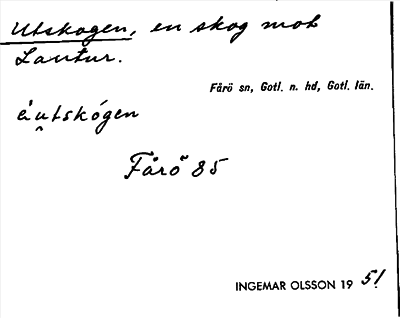 Utskogen, en skog mot
Lautur.
Fårö sn, Gotl. n. hd, Gotl. län.
éu̯tskógen
Fårö 85
INGEMAR OLSSON 19 51